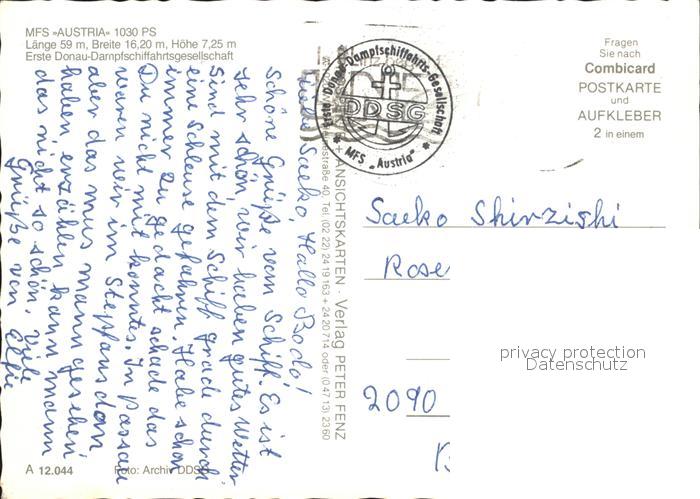 MFS »AUSTRIA« 1030 PS
Länge 59 m, Breite 16,20 m, Höhe 7,25 m
Erste Donau-Dampfschiffahrtsgesellschaft
Liebe Saeko, Hallo Bodo!
Schöne Grüße vom Schiff. Es ist
sehr schön, wir haben gutes Wetter
Sind mit dem Schiff grade durch
eine Schleuse gefahren. Habe schon
immer Du gedacht schade das
Du nicht mit konntes. In Passau
waren wir im Stepfansdom
aber das mus mann gesehen
haben erzählen kann mann
das nicht so schön. Viele
Grüße von Elfie
A 12.044
Foto: Archiv DDSG
+ ANSICHTSKARTEN · Verlag PETER FENZ
straße 40, Tel. (02 22) 24 19 163 + 24 20 714 oder (0 47 13) 23 60
Erste Donau-Dampfschiffahrts-Gesellschaft
DDSG
* MFS „Austria" *
Fragen
Sie nach
Combicard
POSTKARTE
und
AUFKLEBER
2 in einem
Saeko Shirzishi
Rose
2090
privacy protection
Datenschutz